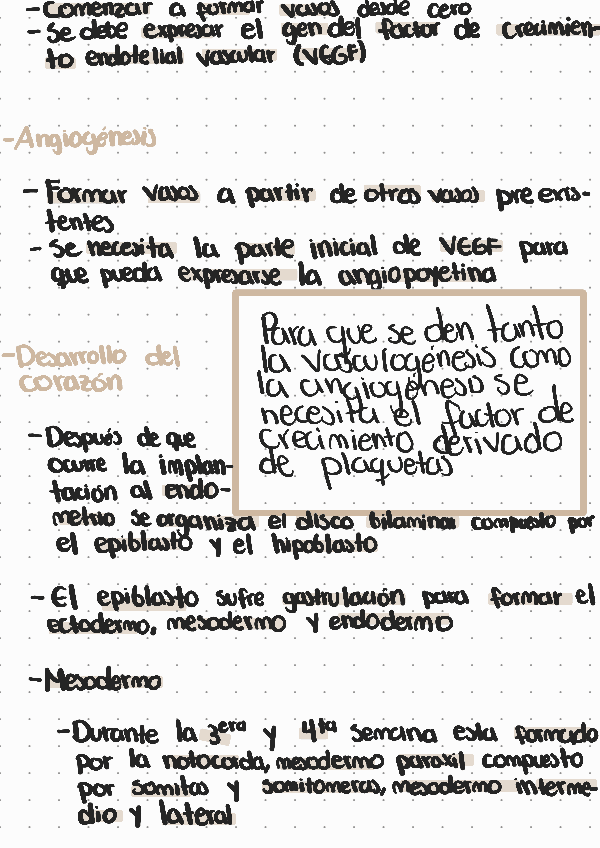 - Comenzar a formar vasos desde cero
- Se debe expresar el gen del factor de crecimien-
to endotelial vascular (VEGF)
- Angiogénesis
- Formar vasos a partir de otros vasos pre exis-
tentes
- Se necesita la parte inicial de VEGF para
que pueda expresarse la angiopoyetina
Para que se den tanto
la vasculogénesis como
la angiogéneso se
necesita el factor de
crecimiento derivado
de plaquetas
- Desarrollo del
corazón
- Después de que
ocurre la implan-
tación al endo-
metrio se organiza el disco bilaminar compuesto por
el epiblasto y el hipoblasto
- El epiblasto sufre gastrulación para formar el
ectodermo, mesodermo y endodermo
- Mesodermo
- Durante la 3era y 4ta semana esta formado
por la notocorda, mesodermo paraxil compuesto
por somitas y somitomeras, mesodermo interme-
dio y lateral